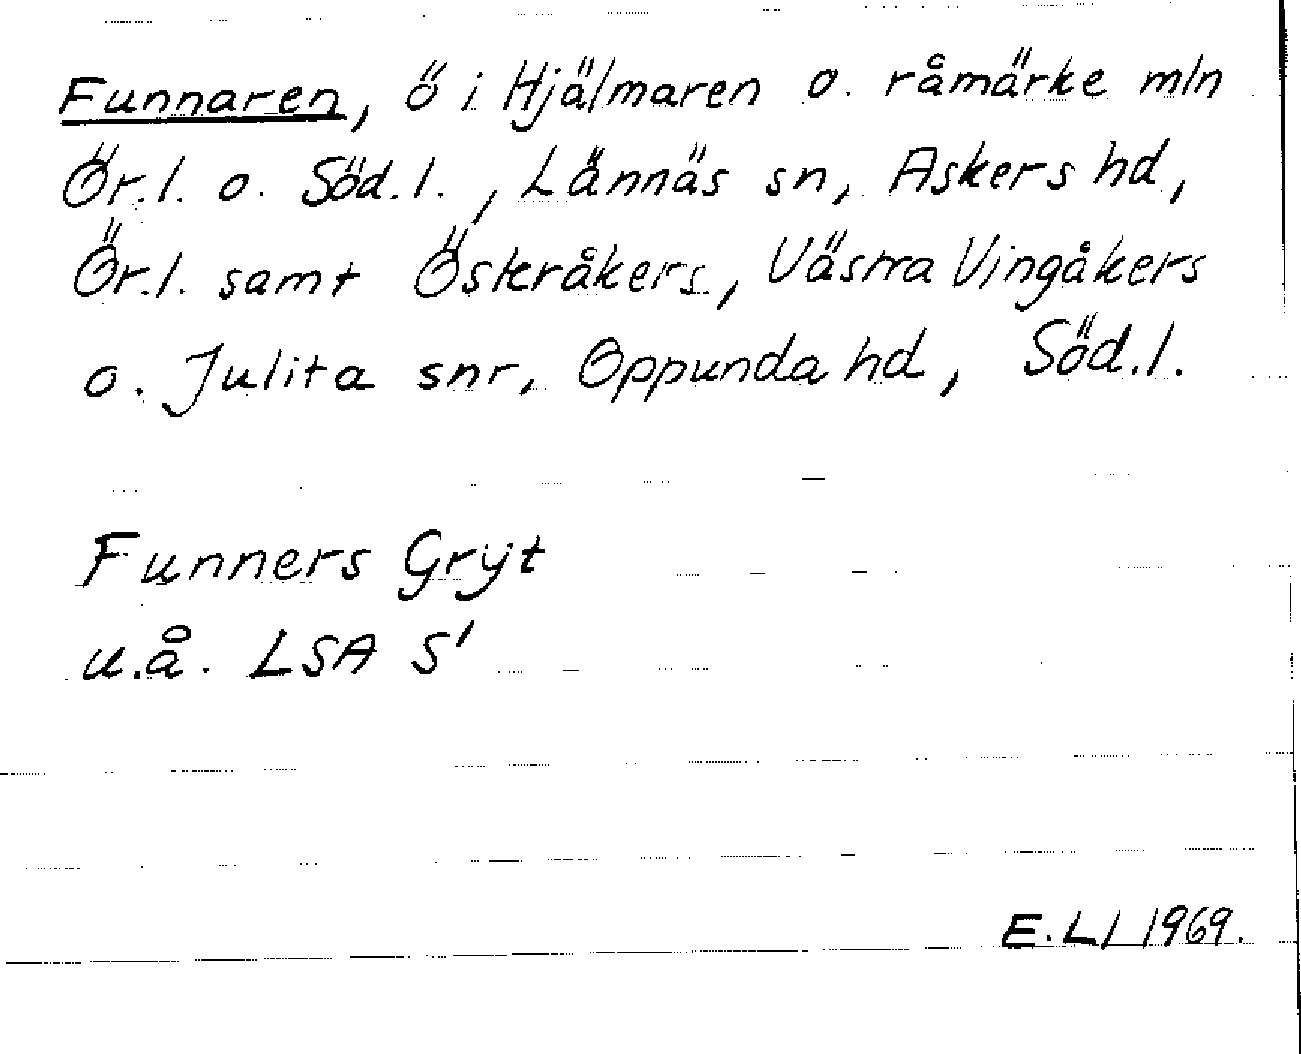 Funnaren, ö i Hjälmaren o. råmärke mln
Ör.l. o. Söd.l., Lännäs sn, Askers hd,
Ör.l. samt Österåkers, Västra Vingåkers
o. Julita snr, Oppunda hd, Söd.l.
Funners Gryt
u.å. LSA S1
E.L / 1969.